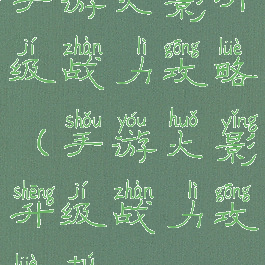 手游火影升
jí zhàn lì gōng lüè
级战力攻略
shǒu yóu huǒ yǐng
(手游火影
shēng jí zhàn lì gōng
升级战力攻
lüè